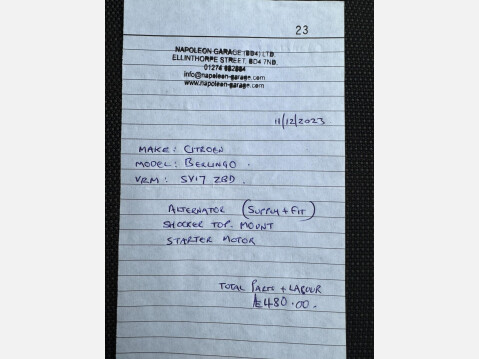 23
NAPOLEON GARAGE (BD4) LTD.
ELLINTHORPE STREET, BD4 7ND.
info@napoleon-garage.com
www.napoleon-garage.com
11/12/2023
MAKE: CITROEN
MODEL: BERLINGO.
VRM: SV17 ZBD.
ALTERNATOR (SUPPLY + FIT)
SHOCKER TOP. MOUNT
STARTER MOTOR
TOTAL PARTS + LABOUR
£480.00.